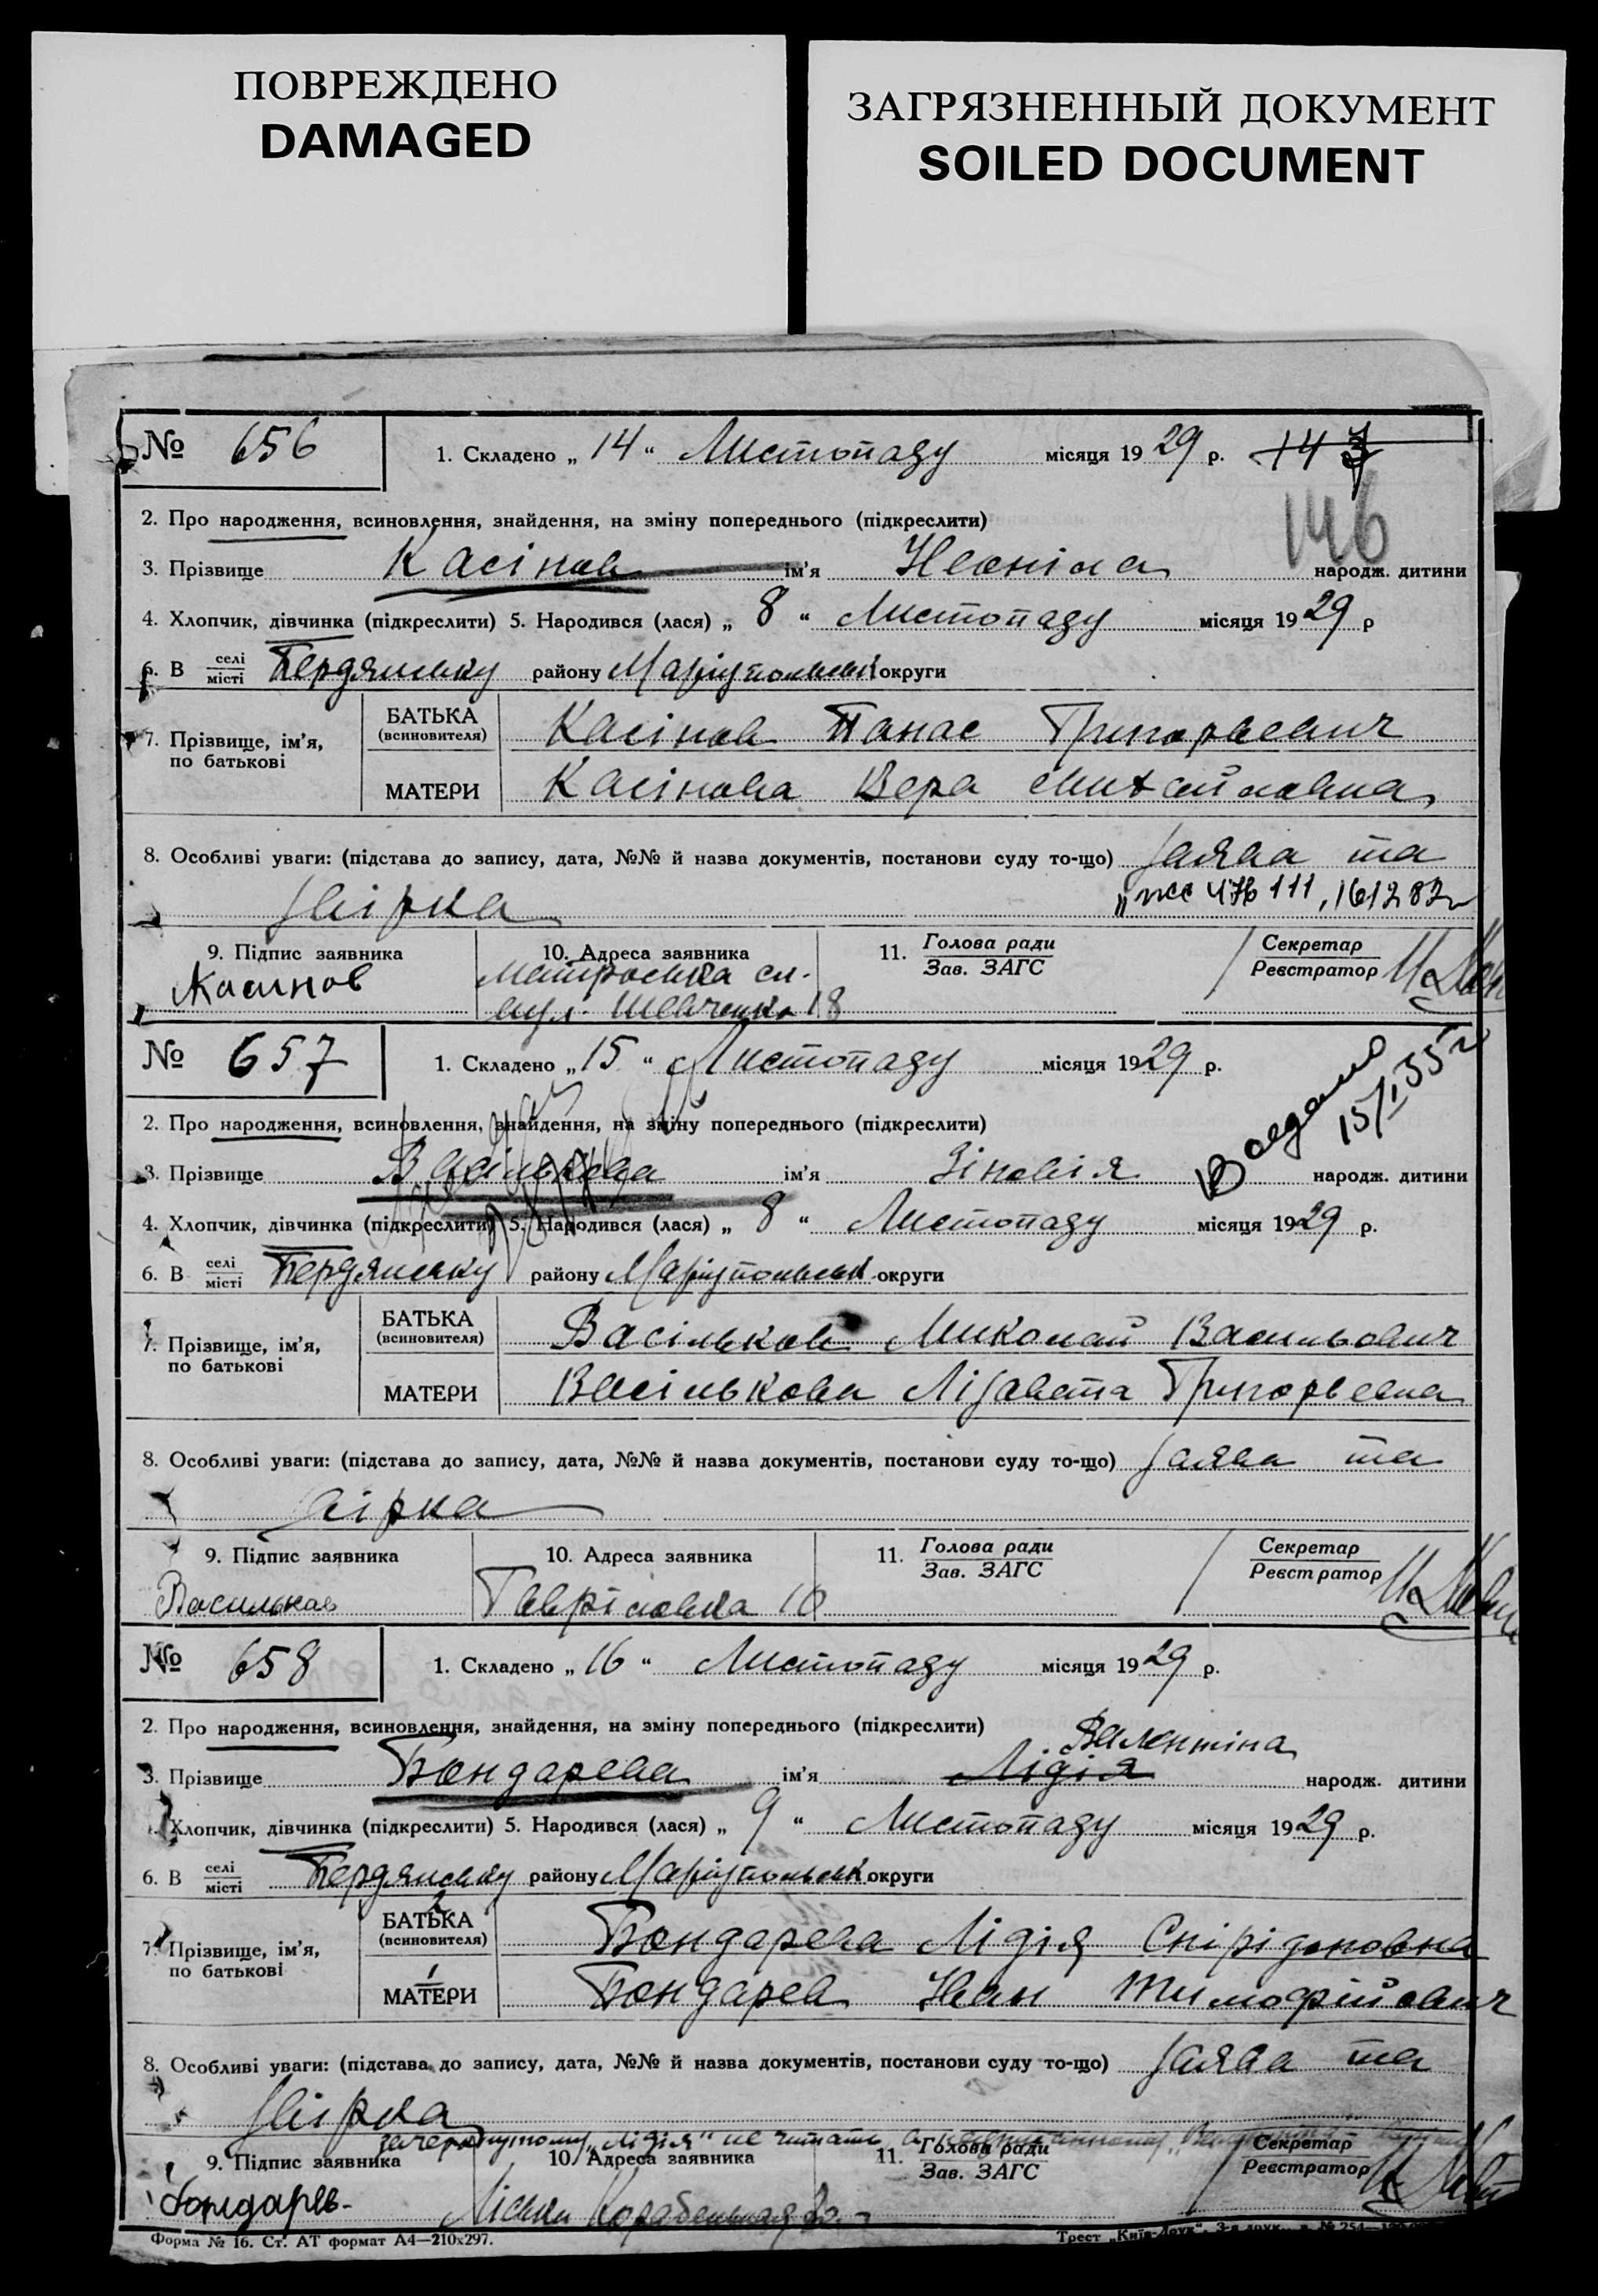 ПОВРЕЖДЕНО
DAMAGED
ЗАГРЯЗНЕННЫЙ ДОКУМЕНТ
SOILED DOCUMENT
№ 656 1. Складено „ 14 “ Листопаду місяця 19 29 р. 147
146
2. Про народження, всиновлення, знайдення, на зміну попереднього (підкреслити)
3. Прізвище Касінов ім'я Неоніла народж. дитини
4. Хлопчик, дівчинка (підкреслити) 5. Народився (лася) „ 8 “ Листопаду місяця 19 29 р
6. В селі місті Бердянську району Маріупольськ округи
7. Прізвище, ім'я, по батькові
БАТЬКА (всиновителя) Касінов Панас Григорьевич
МАТЕРИ Касінова Вера Михайловна
8. Особливі уваги: (підстава до запису, дата, №№ й назва документів, постанови суду то-що) Заява та
звірка
9. Підпис заявника 10. Адреса заявника 11. Голова ради Зав. ЗАГС / Секретар Реєстратор
Касинов Матроська сл.
вул. Шевченко 18
№ 657 1. Складено „ 15 “ Листопаду місяця 19 29 р.
2. Про народження, всиновлення, знайдення, на зміну попереднього (підкреслити)
3. Прізвище Васількова ім'я Зіновія народж. дитини
4. Хлопчик, дівчинка (підкреслити) 5. Народився (лася) „ 8 “ Листопаду місяця 19 29 р.
6. В селі місті Бердянську району Маріупольськ округи
7. Прізвище, ім'я, по батькові
БАТЬКА (всиновителя) Васільков Миколай Васильович
МАТЕРИ Васількова Лізавета Григорьевна
8. Особливі уваги: (підстава до запису, дата, №№ й назва документів, постанови суду то-що) Заява та
звірка
9. Підпис заявника 10. Адреса заявника 11. Голова ради Зав. ЗАГС / Секретар Реєстратор
Васильков Гавріловка 10
№ 658 1. Складено „ 16 “ Листопаду місяця 19 29 р.
2. Про народження, всиновлення, знайдення, на зміну попереднього (підкреслити)
Валентіна
3. Прізвище Бондарева ім'я Лідія народж. дитини
4. Хлопчик, дівчинка (підкреслити) 5. Народився (лася) „ 9 “ Листопаду місяця 19 29 р.
6. В селі місті Бердянську району Маріупольськ округи
7. Прізвище, ім'я, по батькові
2 БАТЬКА (всиновителя) Бондарева Лідія Спірідоновна
1 МАТЕРИ Бондарев Іван Тимофійович
8. Особливі уваги: (підстава до запису, дата, №№ й назва документів, постанови суду то-що) Заява та
звірка
зачеркнутому „Лідія“ не читати
9. Підпис заявника 10. Адреса заявника 11. Голова ради Зав. ЗАГС / Секретар Реєстратор
Бондарев
Форма № 16. Ст. АТ формат А4—210х297. Трест „Київ-Друк“